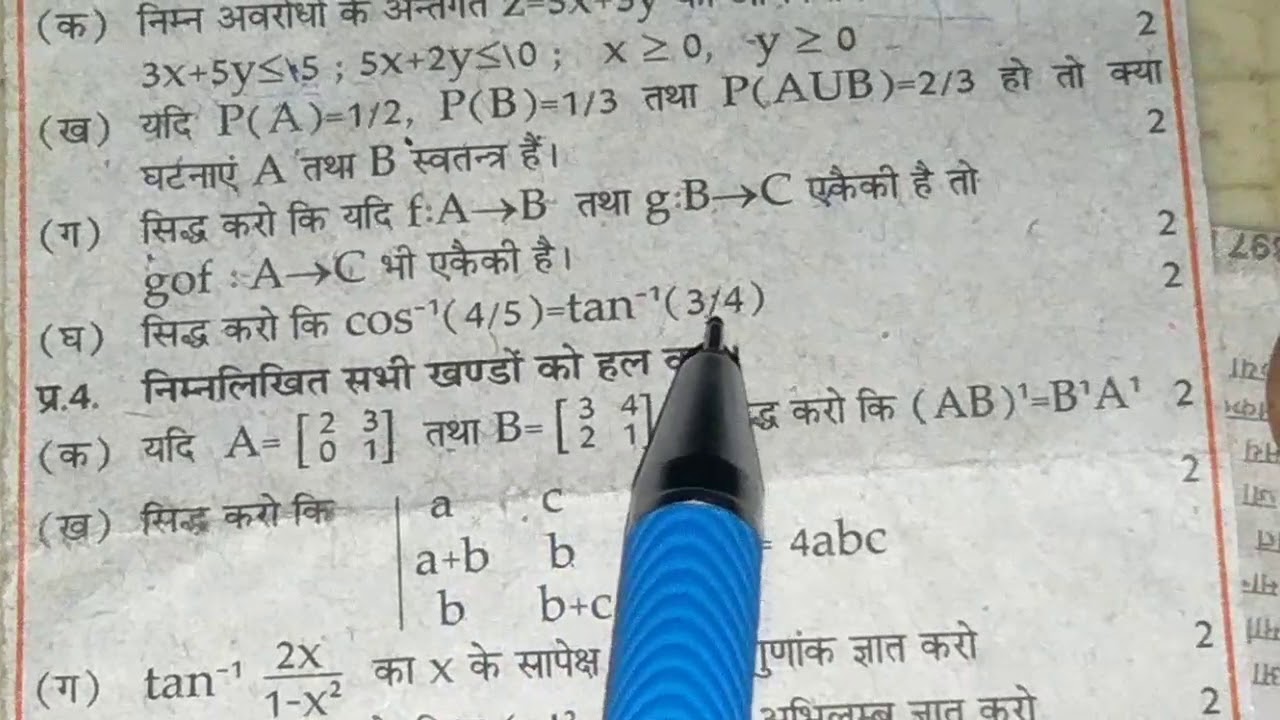 (क) निम्न अवरोधों के अन्तर्गत Z=3x+5y
3x+5y≤15 ; 5x+2y≤10 ; x ≥ 0, y ≥ 0 2
(ख) यदि P(A)=1/2, P(B)=1/3 तथा P(AUB)=2/3 हो तो क्या
घटनाएं A तथा B स्वतन्त्र हैं। 2
(ग) सिद्ध करो कि यदि f:A→B तथा g:B→C एकैकी है तो
gof : A→C भी एकैकी है। 2
(घ) सिद्ध करो कि cos⁻¹(4/5)=tan⁻¹(3/4) 2
प्र.4. निम्नलिखित सभी खण्डों को हल
(क) यदि A= [2 3 तथा B= [3 4 करो कि (AB)¹=B¹A¹ 2
0 1] 2 1]
(ख) सिद्ध करो कि | a c 2
a+b b = 4abc
b b+c
(ग) tan⁻¹ 2x/1-x² का x के सापेक्ष गुणांक ज्ञात करो 2
अभिलम्ब ज्ञात करो 2